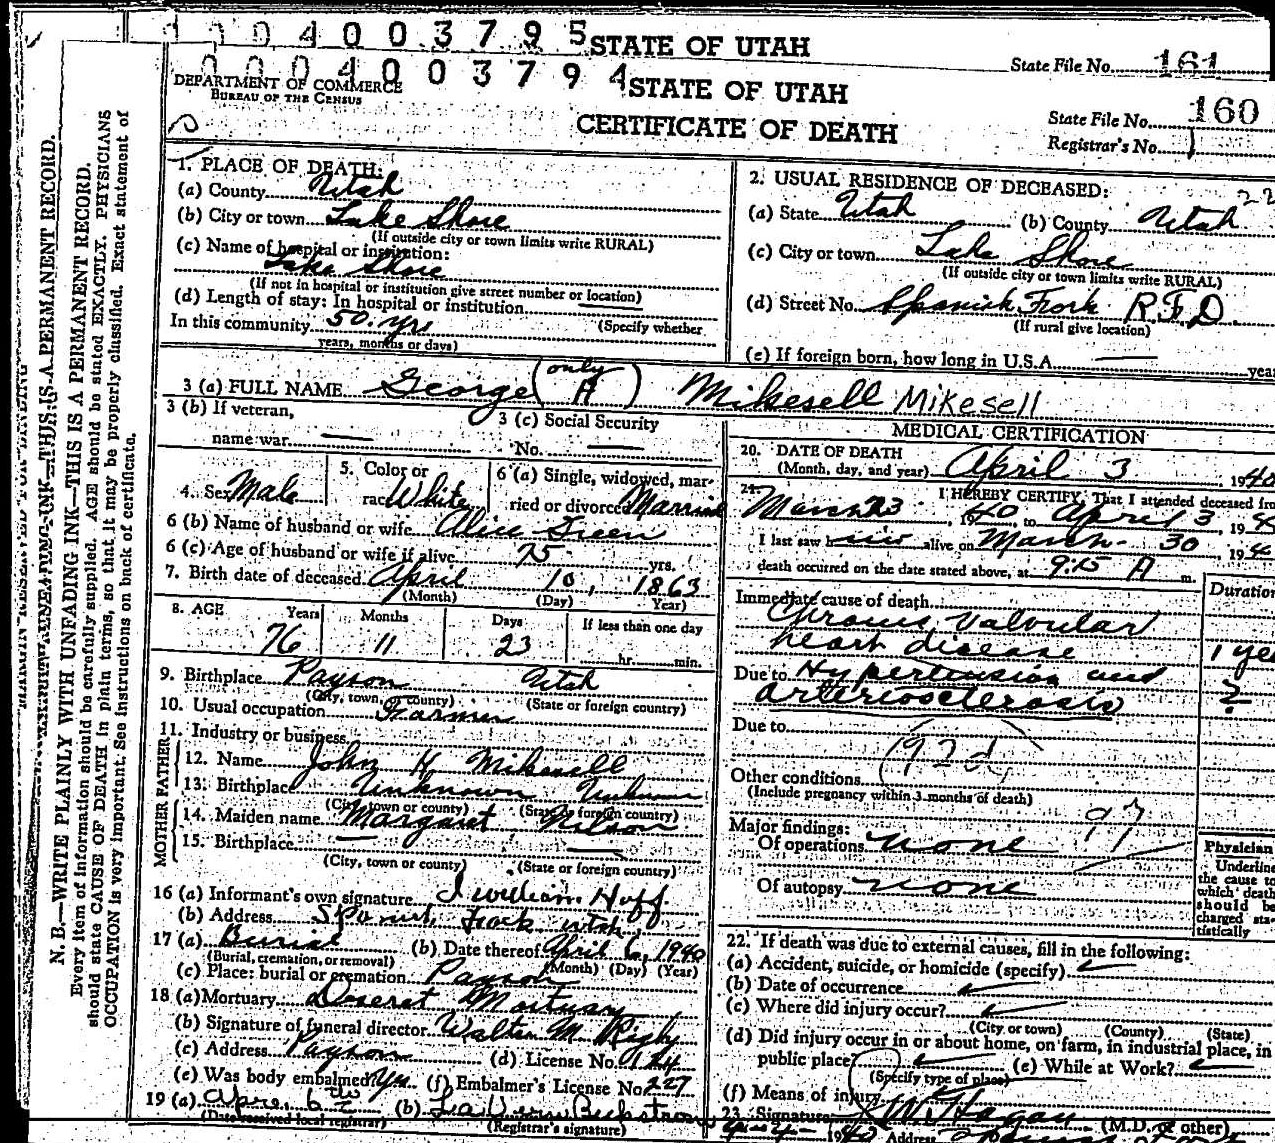 0 0 0 4 0 0 3 7 9 5 STATE OF UTAH
State File No. 161
0 0 0 4 0 0 3 7 9 4 STATE OF UTAH
DEPARTMENT OF COMMERCE
BUREAU OF THE CENSUS
CERTIFICATE OF DEATH
State File No. 160
Registrar's No. 1
N. B.—WRITE PLAINLY WITH UNFADING INK—THIS IS A PERMANENT RECORD.
Every item of information should be carefully supplied. AGE should be stated EXACTLY. PHYSICIANS
should state CAUSE OF DEATH in plain terms, so that it may be properly classified. Exact statement of
OCCUPATION is very important. See instructions on back of certificate.
1. PLACE OF DEATH:
(a) County Utah
(b) City or town Lake Shore
(If outside city or town limits write RURAL)
(c) Name of hospital or institution:
Lake Shore
(If not in hospital or institution give street number or location)
(d) Length of stay: In hospital or institution
In this community 50 yrs (Specify whether
years, months or days)
2. USUAL RESIDENCE OF DECEASED:
(a) State Utah (b) County Utah
(c) City or town Lake Shore
(If outside city or town limits write RURAL)
(d) Street No. Spanish Fork R.F.D.
(If rural give location)
(e) If foreign born, how long in U.S.A. years
3 (a) FULL NAME George (only A) Mikesell Mikesell
3 (b) If veteran,
name war
3 (c) Social Security
No.
4. Sex Male
5. Color or
race White
6 (a) Single, widowed, mar-
ried or divorced Married
6 (b) Name of husband or wife Alice Green
6 (c) Age of husband or wife if alive 75 yrs.
7. Birth date of deceased April 10, 1863
(Month) (Day) Year)
8. AGE Years Months Days If less than one day
76 11 23 hr. min.
9. Birthplace Payson Utah
(City, town or county) (State or foreign country)
10. Usual occupation Farmer
11. Industry or business
FATHER
12. Name John H Mikesell
13. Birthplace Unknown Unknown
(City, town or county) (State or foreign country)
MOTHER
14. Maiden name Margaret Wilson
15. Birthplace
(City, town or county) (State or foreign country)
16 (a) Informant's own signature J William Huff
(b) Address Spanish Fork Utah
17 (a) Burial (b) Date thereof April 6, 1940
(Burial, cremation, or removal) (Month) (Day) (Year)
(c) Place: burial or cremation Payson
18 (a) Mortuary Deseret Mortuary
(b) Signature of funeral director Walter M. Rigby
(c) Address Payson (d) License No. 124
(e) Was body embalmed? Yes (f) Embalmer's License No. 227
19 (a) April 6 (b)
(Date received local registrar) (Registrar's signature)
MEDICAL CERTIFICATION
20. DATE OF DEATH
(Month, day, and year) April 3 1940
21. I HEREBY CERTIFY, That I attended deceased from
March 23, 1940 to April 3, 19
I last saw him alive on March 30, 19
death occurred on the date stated above, at 9:15 A m.
Duration
Immediate cause of death
Chronic Valvular
heart disease 1 ye
Due to Hypertension and
arteriosclerosis ?
Due to
92d
Other conditions
(Include pregnancy within 3 months of death)
97
Major findings:
Of operations none
Of autopsy none
Physician
Underline
the cause to
which death
should be
charged sta-
tistically
22. If death was due to external causes, fill in the following:
(a) Accident, suicide, or homicide (specify)
(b) Date of occurrence
(c) Where did injury occur?
(City or town) (County) (State)
(d) Did injury occur in or about home, on farm, in industrial place, in
public place? (e) While at Work?
(Specify type of place)
(f) Means of injury
23. Signature J W Hagan (M.D. or other)
1940 Address